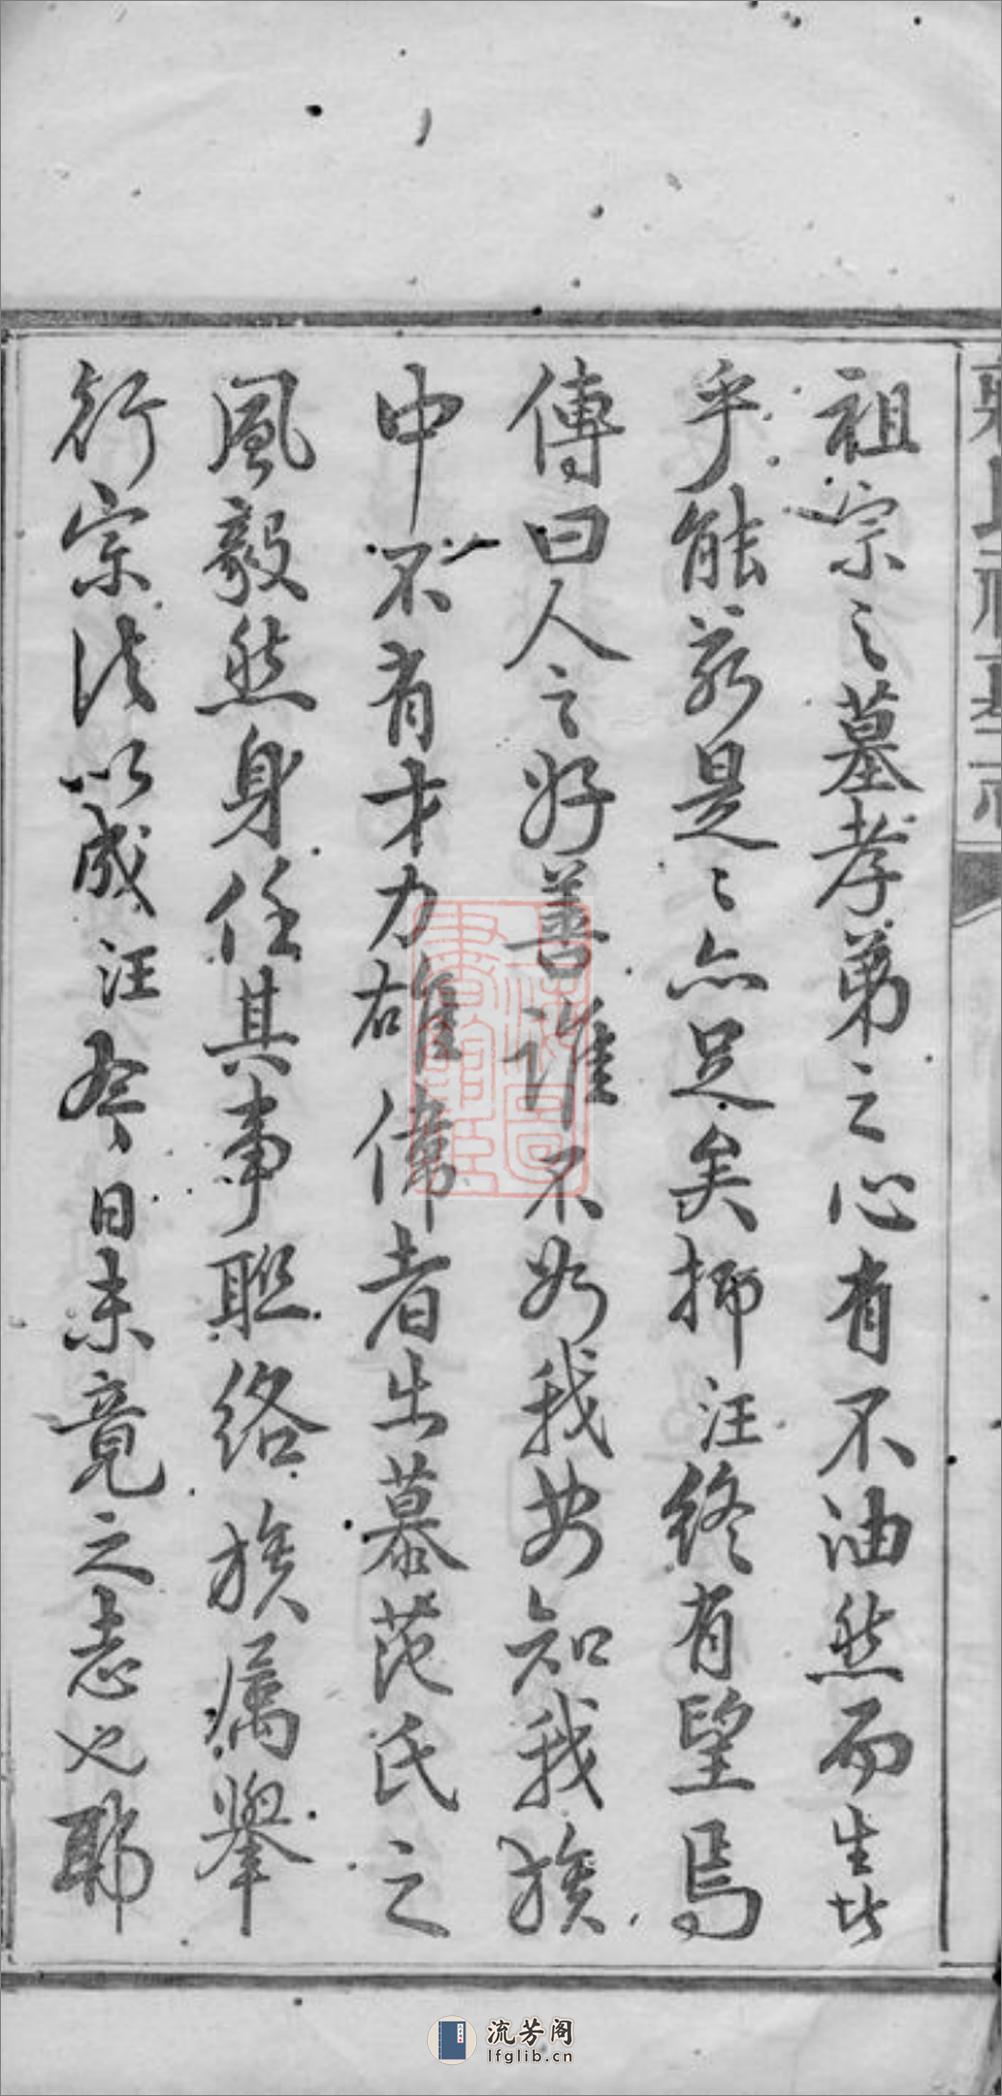 祖宗之墓孝弟之心有不油然而生者
乎能若是是亦足矣抑汪終有望焉
傳曰人之好善誰不如我安知我族
中不有才力雄偉者出慕范氏之
風毅然身任其事聯絡族属舉
行宗法以成汪今日未竟之志也耶
流芳阁
lfglib.cn